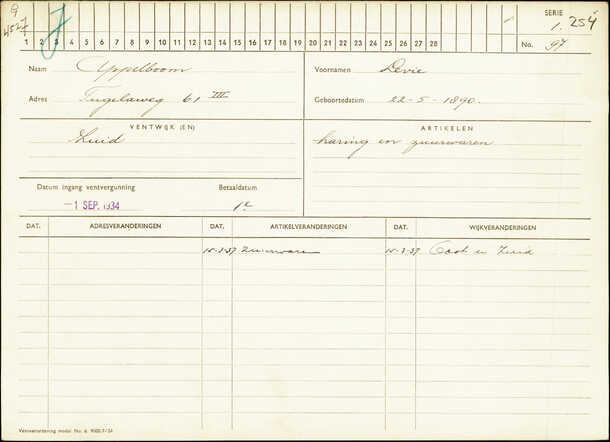 G
J
SERIE
1. 254
1 2 3 4 5 6 7 8 9 10 11 12 13 14 15 16 17 18 19 20 21 22 23 24 25 26 27 28
No. 97
Naam Appelboom
Voornamen Levie
Adres Tugelaweg 61 III
Geboortedatum 22-5-1890.
VENTWIJK (EN)
ARTIKELEN
Zuid
haring en zuurwaren
Datum ingang ventvergunning
Betaaldatum
-1 SEP. 1934
1e
DAT. ADRESVERANDERINGEN DAT. ARTIKELVERANDERINGEN DAT. WIJKVERANDERINGEN
15-3-37 Zuurwaren 15-3-37 Oost en Zuid
Ventverordening model No. 6